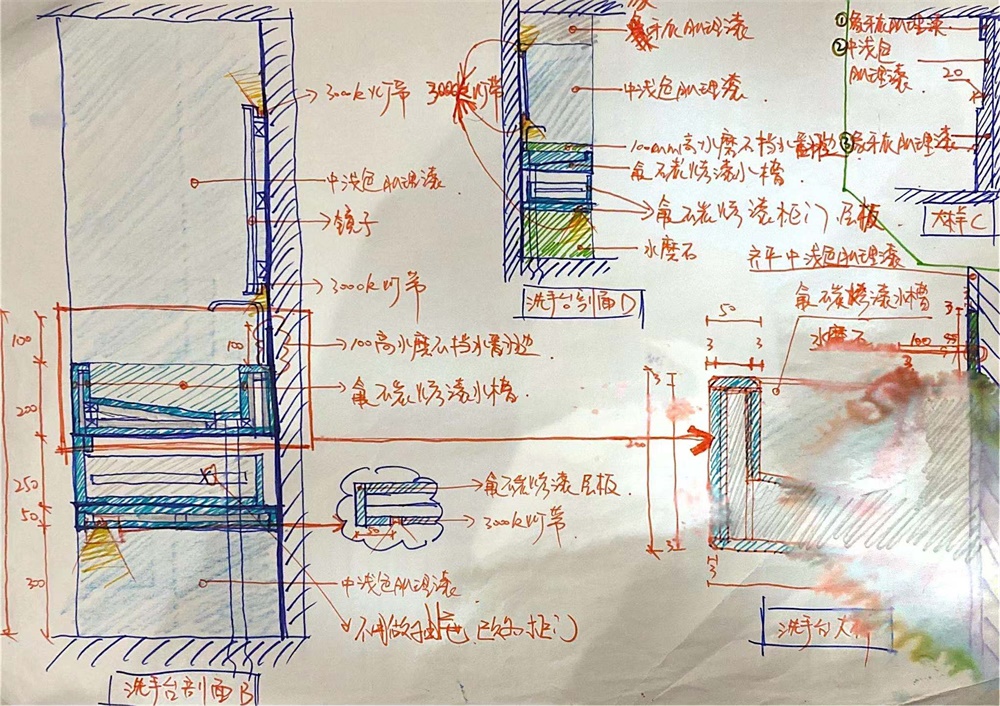 3000k灯带
中浅色肌理漆
镜子
3000k灯带
100高水磨石档水翻边
氟碳烤漆水槽
100
100
200
250
50
300
50
氟碳烤漆层板
3000k灯带
中浅色肌理漆
不用做抽屉 改为柜门
洗手台剖面B
象牙灰肌理漆
3000k灯带
中浅色肌理漆
100mm高水磨石档水翻边
氟碳烤漆水槽
氟碳烤漆柜门、层板
水磨石
洗手台剖面D
①象牙灰肌理漆
②中浅色
肌理漆
20
③象牙灰肌理漆
大样C
齐平中浅色肌理漆
氟碳烤漆水槽
50
水磨石
100
3
3
3
3
3
200
3
3
洗手台大